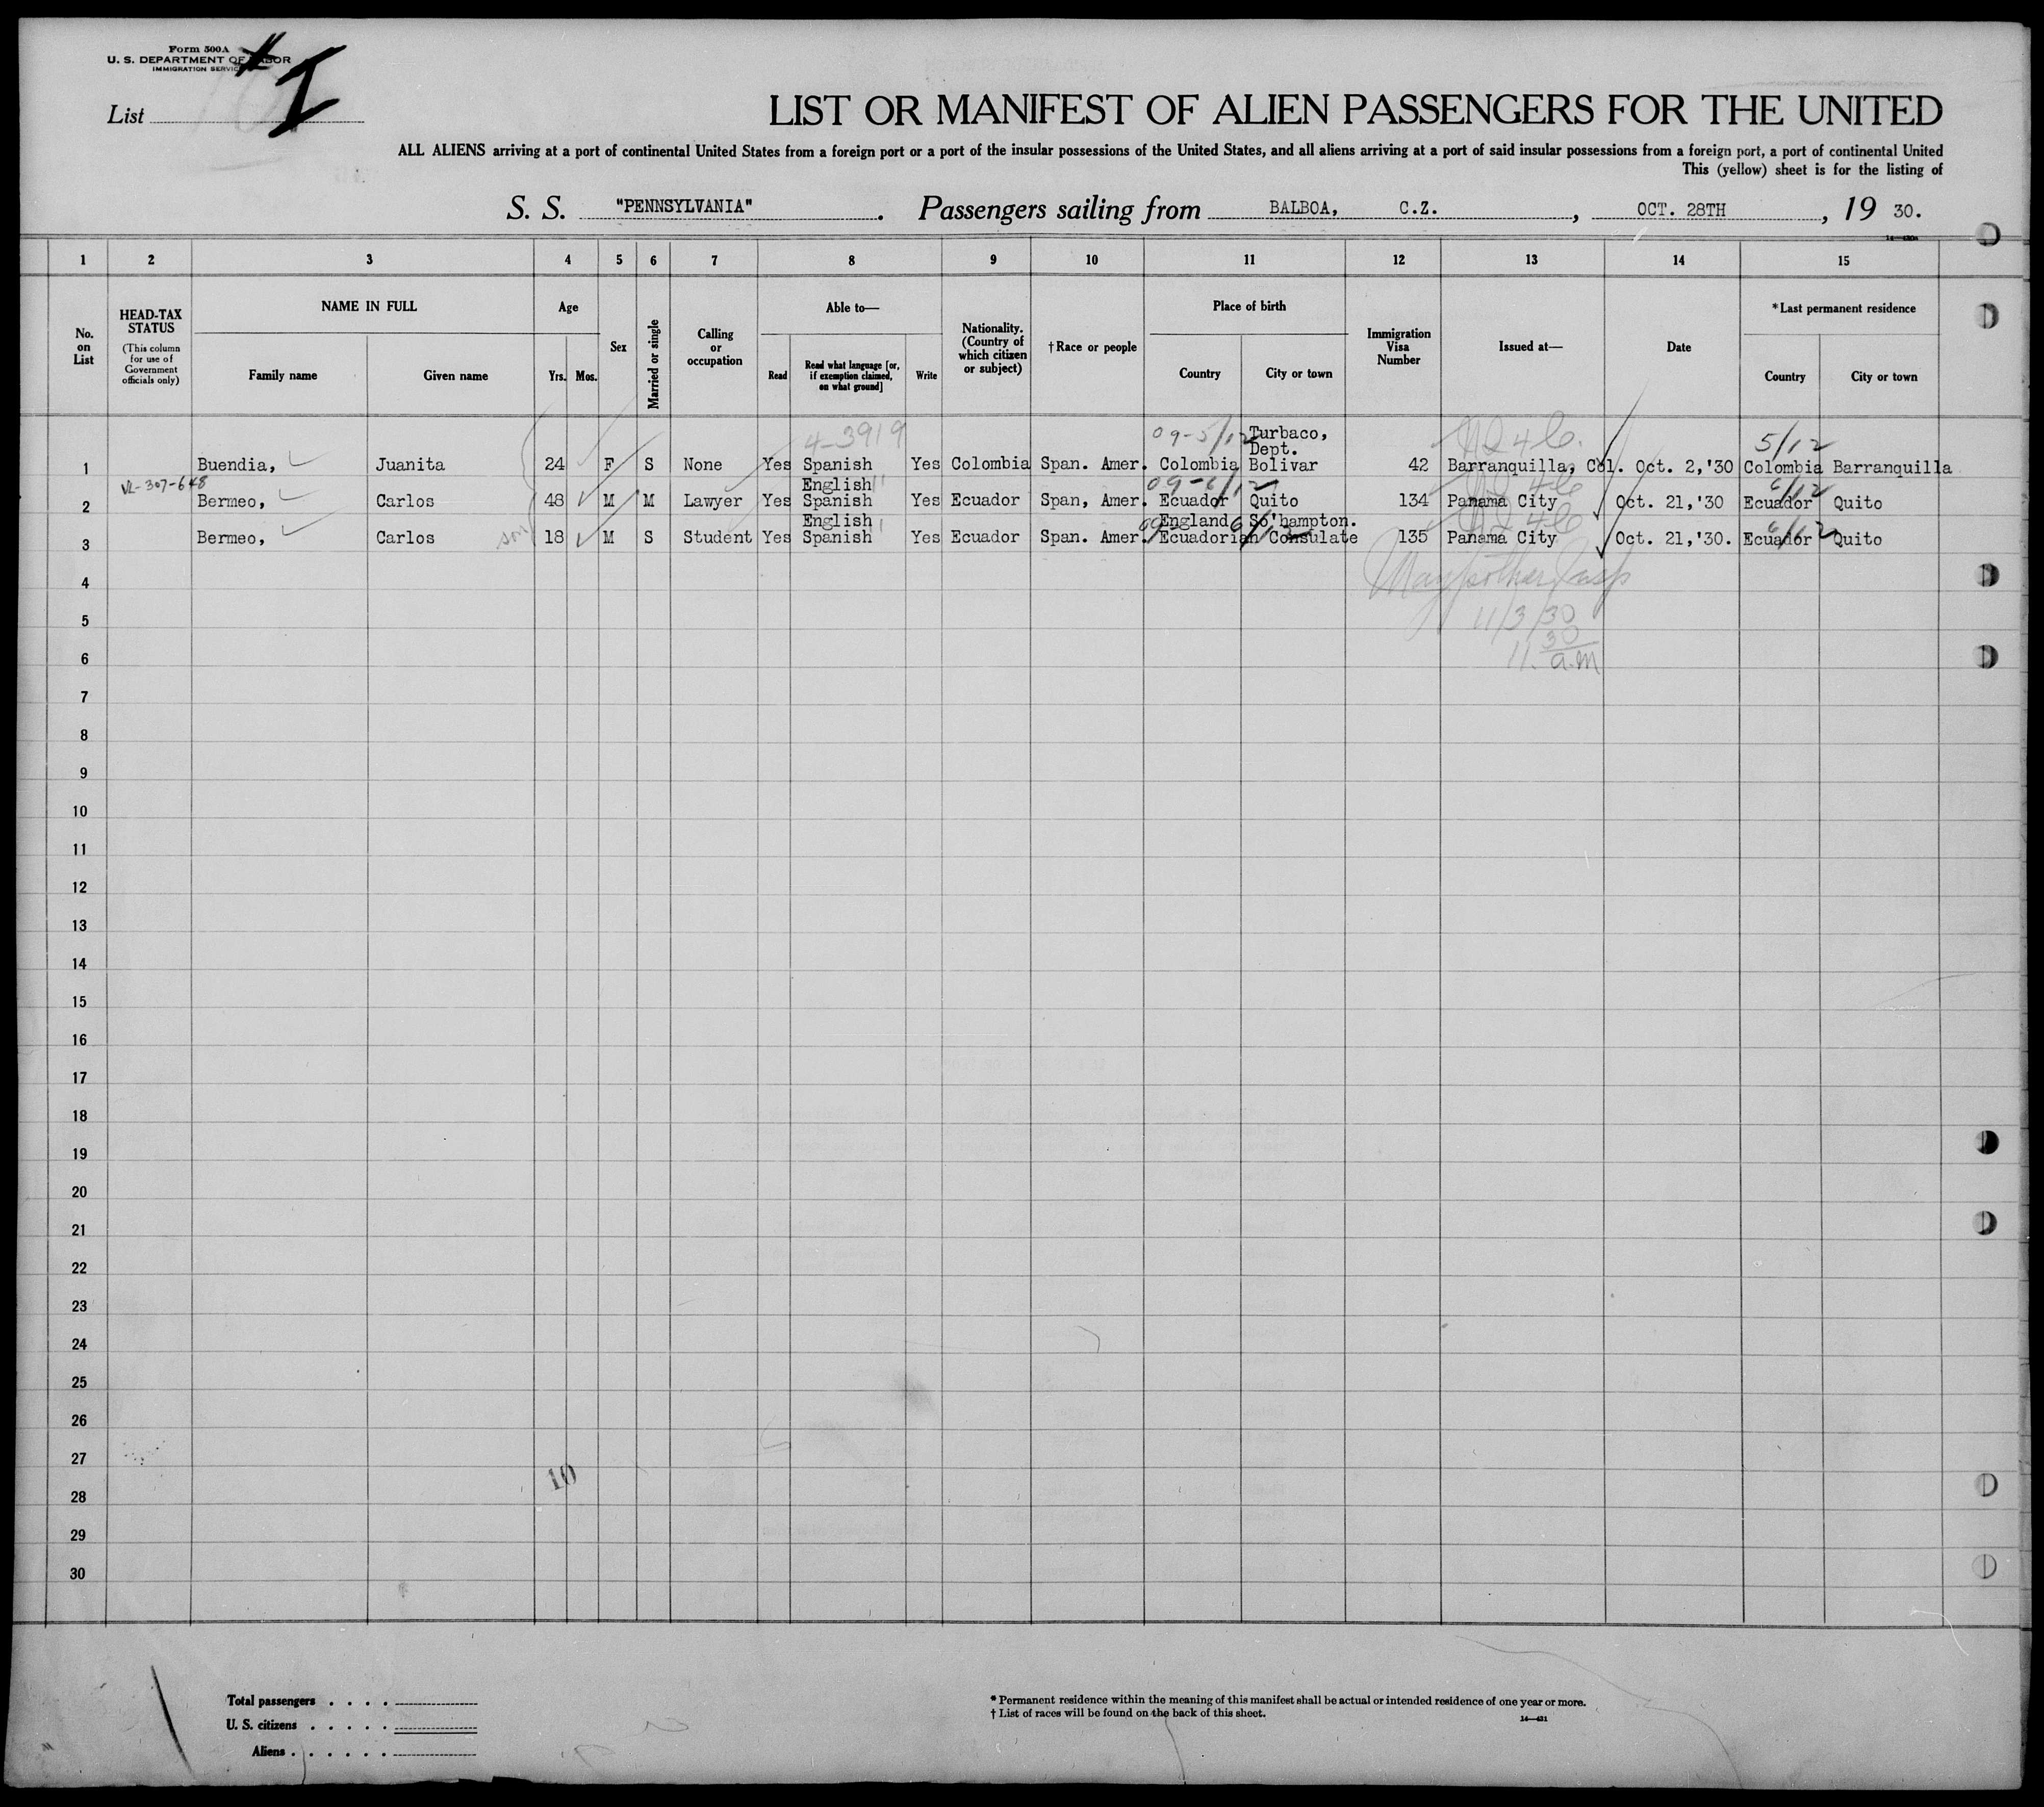 Form 500A
U. S. DEPARTMENT OF LABOR
IMMIGRATION SERVICE
# I
List
LIST OR MANIFEST OF ALIEN PASSENGERS FOR THE UNITED
ALL ALIENS arriving at a port of continental United States from a foreign port or a port of the insular possessions of the United States, and all aliens arriving at a port of said insular possessions from a foreign port, a port of continental United
This (yellow) sheet is for the listing of
S. S. "PENNSYLVANIA". Passengers sailing from BALBOA, C.Z., OCT. 28TH, 19 30.
1 2 3 4 5 6 7 8 9 10 11 12 13 14 15
No. on List
HEAD-TAX STATUS
(This column for use of Government officials only)
NAME IN FULL
Family name
Given name
Age
Yrs. Mos.
Sex
Married or single
Calling or occupation
Able to—
Read
Read what language [or, if exemption claimed, on what ground]
Write
Nationality. (Country of which citizen or subject)
†Race or people
Place of birth
Country
City or town
Immigration Visa Number
Issued at—
Date
*Last permanent residence
Country
City or town
4-3919 09-5/12 Turbaco, 5/12
Dept.
1 Buendia, Juanita 24 F S None Yes Spanish Yes Colombia Span. Amer. Colombia Bolivar 42 Barranquilla, Col. Oct. 2,'30 Colombia Barranquilla
VL-307-648 English 09-6/12 6/12
2 Bermeo, Carlos 48 M M Lawyer Yes Spanish Yes Ecuador Span, Amer. Ecuador Quito 134 Panama City Oct. 21,'30 Ecuador Quito
English England So'hampton. 6/12
3 Bermeo, Carlos son 18 M S Student Yes Spanish Yes Ecuador Span. Amer. Ecuadorian Consulate 135 Panama City Oct. 21,'30. Ecuador Quito
4
5 11/3/30
6 11.30 a.m
7
8
9
10
11
12
13
14
15
16
17
18
19
20
21
22
23
24
25
26
27
10
28
29
30
Total passengers
U. S. citizens
Aliens
* Permanent residence within the meaning of this manifest shall be actual or intended residence of one year or more.
† List of races will be found on the back of this sheet.
14—431